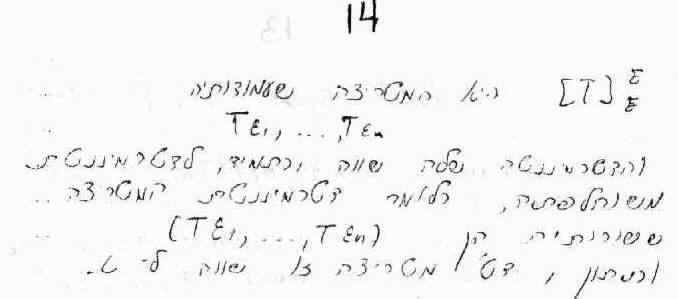 14
[T]_E^E היא המטריצה שעמודותיה
Tε₁, ..., Tεₙ
והדטרמיננטה שלה שווה, כתמיד, לדטרמיננטת
משוחלפתה, כלומר דטרמיננטת המטריצה
ששורותיה הן (Tε₁, ..., Tεₙ)
וכנתון, דט' מטריצה זו שווה ל-